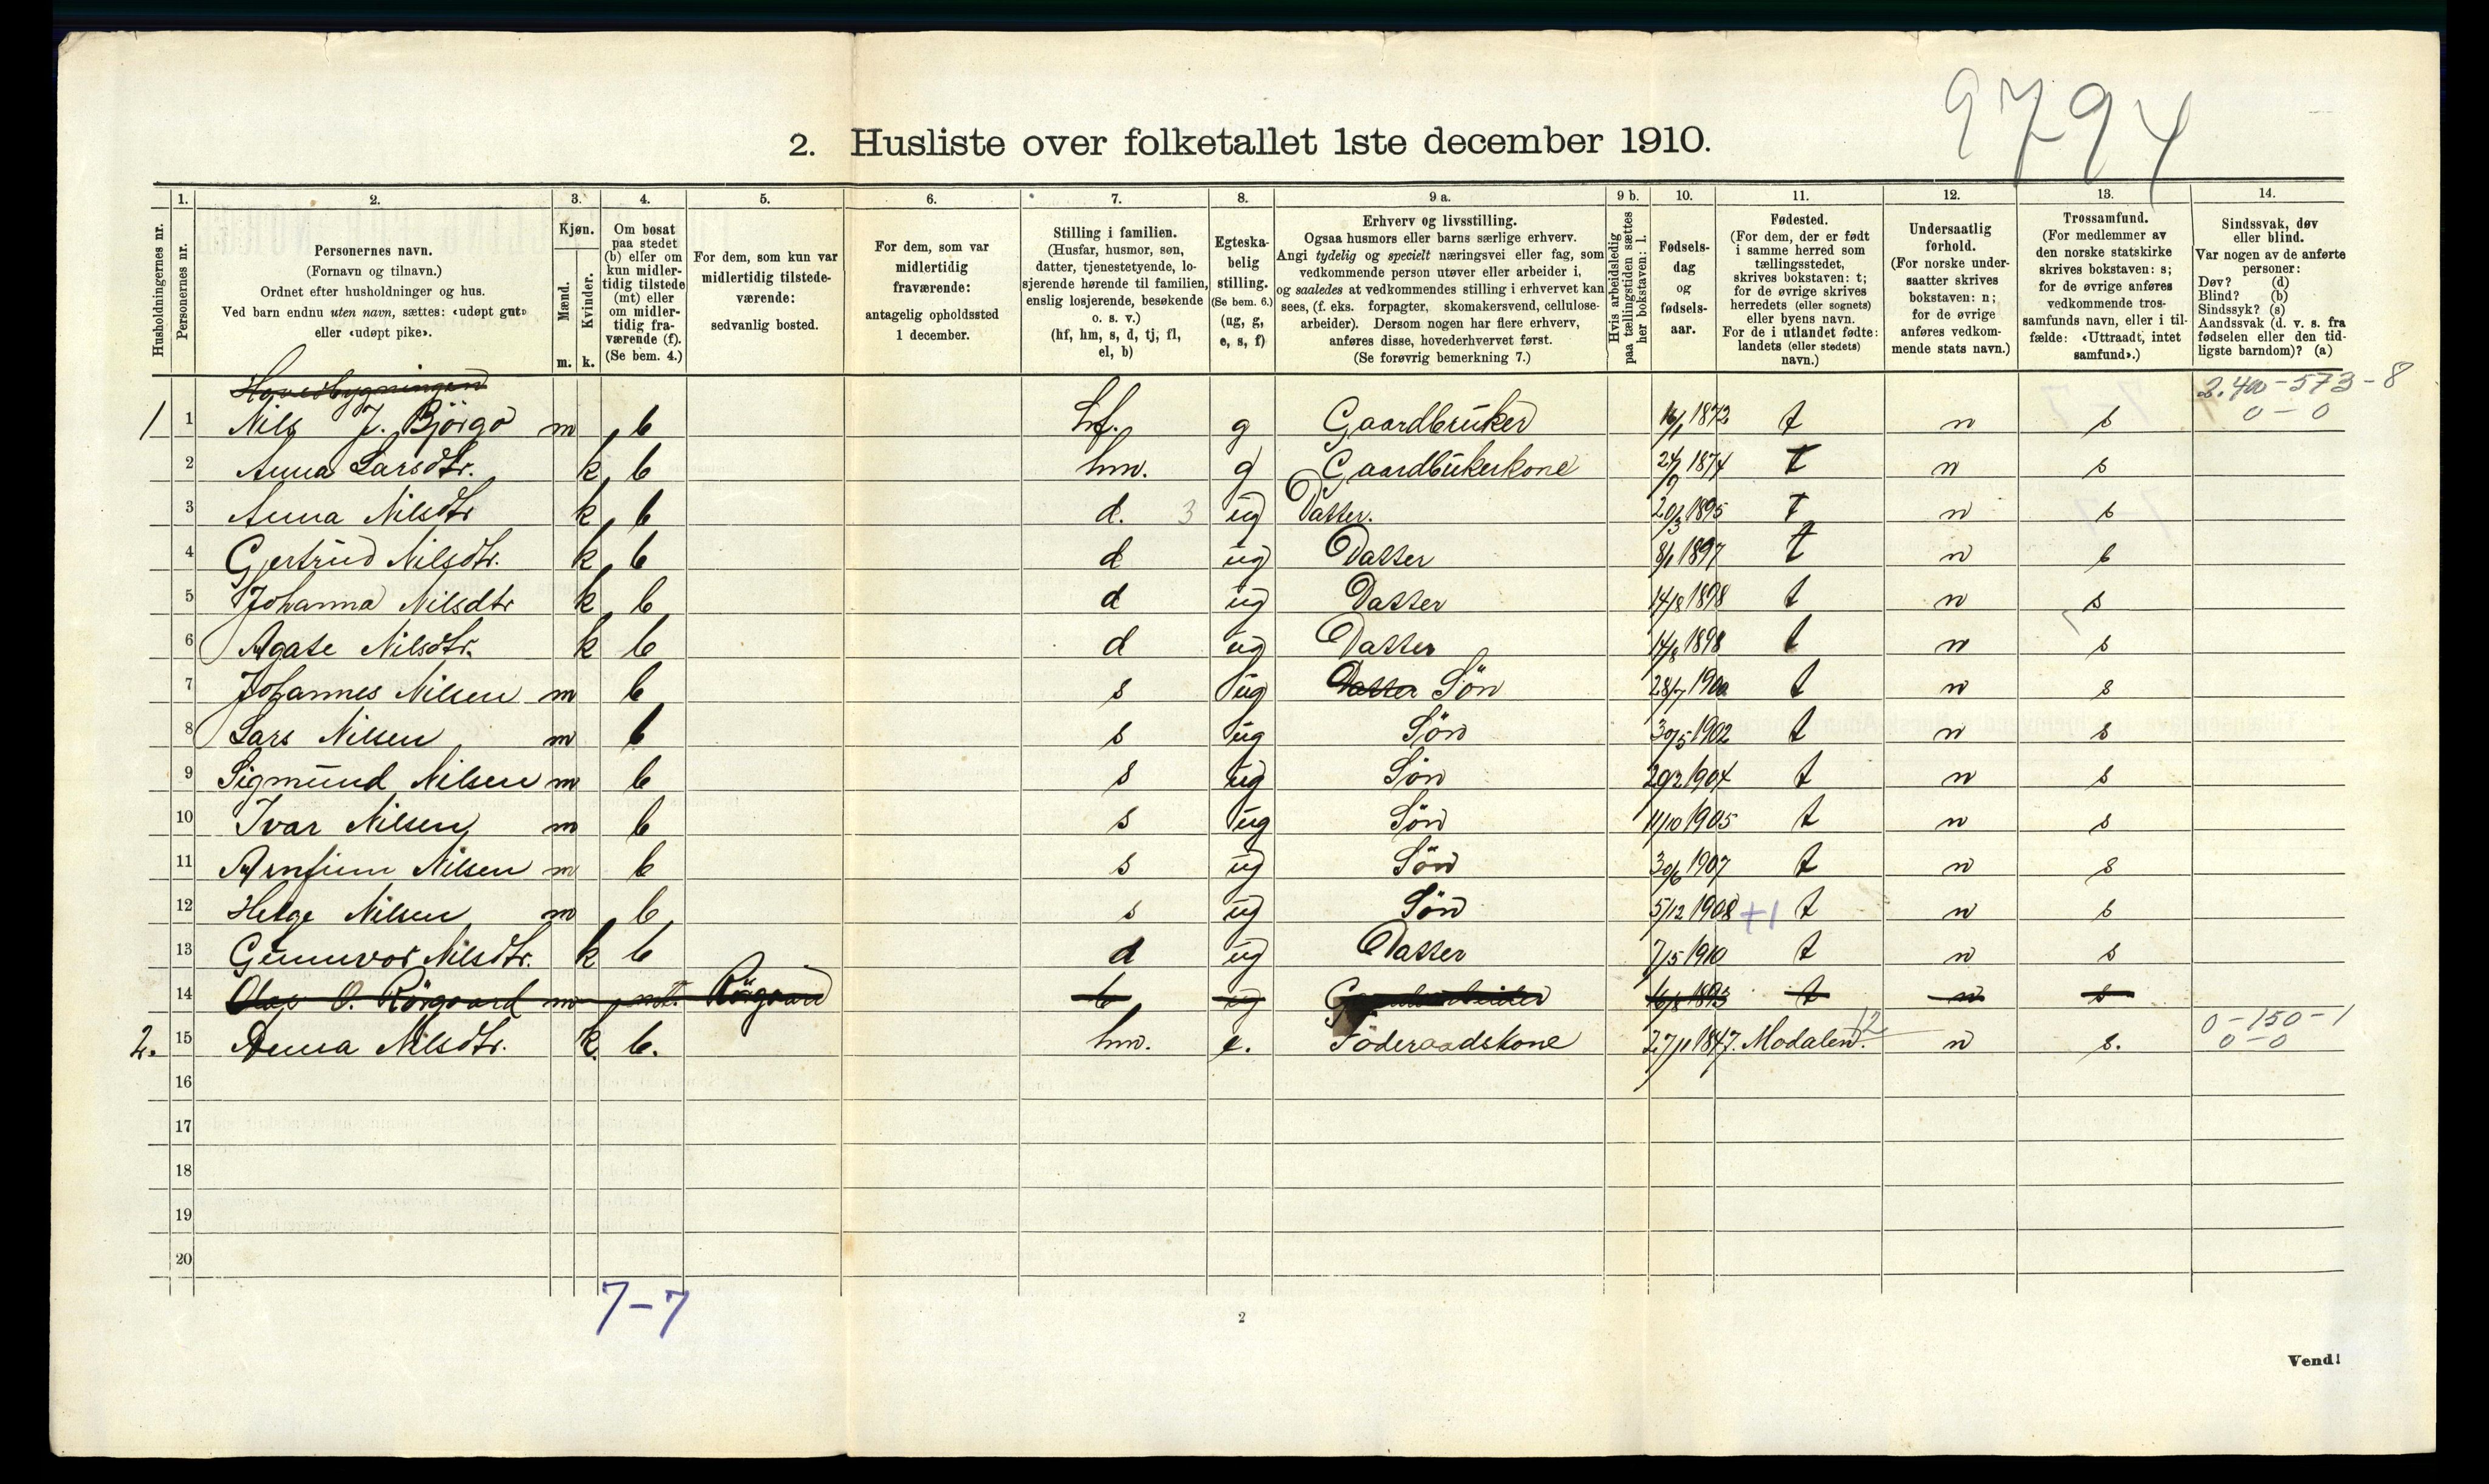 9794
2. Husliste over folketallet 1ste december 1910.
Husholdningernes nr.
1. Personernes nr.
2. Personernes navn. (Fornavn og tilnavn.) Ordnet efter husholdninger og hus. Ved barn endnu uten navn, sættes: «udøpt gut» eller «udøpt pike».
3. Kjøn. Mænd. m. Kvinder. k.
4. Om bosat paa stedet (b) eller om kun midlertidig tilstede (mt) eller om midlertidig fraværende (f). (Se bem. 4.)
5. For dem, som kun var midlertidig tilstedeværende: sedvanlig bosted.
6. For dem, som var midlertidig fraværende: antagelig opholdssted 1 december.
7. Stilling i familien. (Husfar, husmor, søn, datter, tjenestetyende, losjerende hørende til familien, enslig losjerende, besøkende o. s. v.) (hf, hm, s, d, tj, fl, el, b)
8. Egteskabelig stilling. (Se bem. 6.) (ug, g, e, s, f)
9 a. Erhverv og livsstilling. Ogsaa husmors eller barns særlige erhverv. Angi tydelig og specielt næringsvei eller fag, som vedkommende person utøver eller arbeider i, og saaledes at vedkommendes stilling i erhvervet kan sees, (f. eks. forpagter, skomakersvend, cellulosearbeider). Dersom nogen har flere erhverv, anføres disse, hovederhvervet først. (Se forøvrig bemerkning 7.)
9 b. Hvis arbeidsledig paa tællingstiden sættes her bokstaven: l.
10. Fødselsdag og fødselsaar.
11. Fødested. (For dem, der er født i samme herred som tællingsstedet, skrives bokstaven: t; for de øvrige skrives herredets (eller sognets) eller byens navn. For de i utlandet fødte: landets (eller stedets) navn.)
12. Undersaatlig forhold. (For norske undersaatter skrives bokstaven: n; for de øvrige anføres vedkommende stats navn.)
13. Trossamfund. (For medlemmer av den norske statskirke skrives bokstaven: s; for de øvrige anføres vedkommende trossamfunds navn, eller i tilfælde: «Uttraadt, intet samfund».)
14. Sindssvak, døv eller blind. Var nogen av de anførte personer: Døv? (d) Blind? (b) Sindssyk? (s) Aandssvak (d. v. s. fra fødselen eller den tidligste barndom)? (a)
Hovedbygningen
2.400-573-8
1 1 Nils J. Björgo m b hf. g Gaardbruker 16/1 1872 t n s 0-0
2 Anna Larsdtr. k b hm. g Gaardbukerkone 24/9 1874 t n s
3 Anna Nilsdtr k b d. 3 ug Datter. 20/3 1895 t n s
4 Gjertrud Nilsdtr. k b d ug Datter 8/1 1897 t n s
5 Johanna Nilsdtr k b d ug Datter 14/8 1898 t n s
6 Agate Nilsdtr. k b d ug Datter 14/8 1898 t n s
7 Johannes Nilsen m b s ug Datter Sön 28/7 1900 t n s
8 Lars Nilsen m b s ug Sön 30/5 1902 t n s
9 Sigmund Nilsen m b s ug Sön 29/2 1904 t n s
10 Ivar Nilsen m b s ug Sön 11/10 1905 t n s
11 Arnfinn Nilsen m b s ug Sön 30/6 1907 t n s
12 Helge Nilsen m b s ug Sön 5/12 1908 +1 t n s
13 Gunnvor Nilsdtr. k b d ug Datter 7/5 1910 t n s
14 Olav O. Rörgaard m mt. Rörgaard b ug 16/8 1893 t n s
0-150-1
2. 15 Anna Nilsdtr. k. b. hm. e. Föderaadskone 27/11 1847. Modalen. 12 n s. 0-0
16
17
18
19
20
7-7
2
Vend!